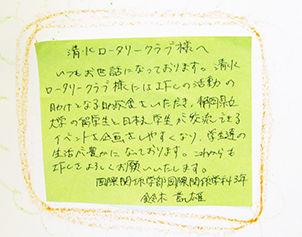 清水ロータリークラブ様へ
いつもお世話になっております。清水
ロータリークラブ様には正Fしの活動の
助けとなる助成金をいただき、静岡県立
大学の留学生と日本人学生が交流できる
イベントを企画しやすくなり、学生達の
生活が豊かになっております。これからも
正Fしてよろしくお願いいたします。
国際関係学部国際関係学科3年
鈴木